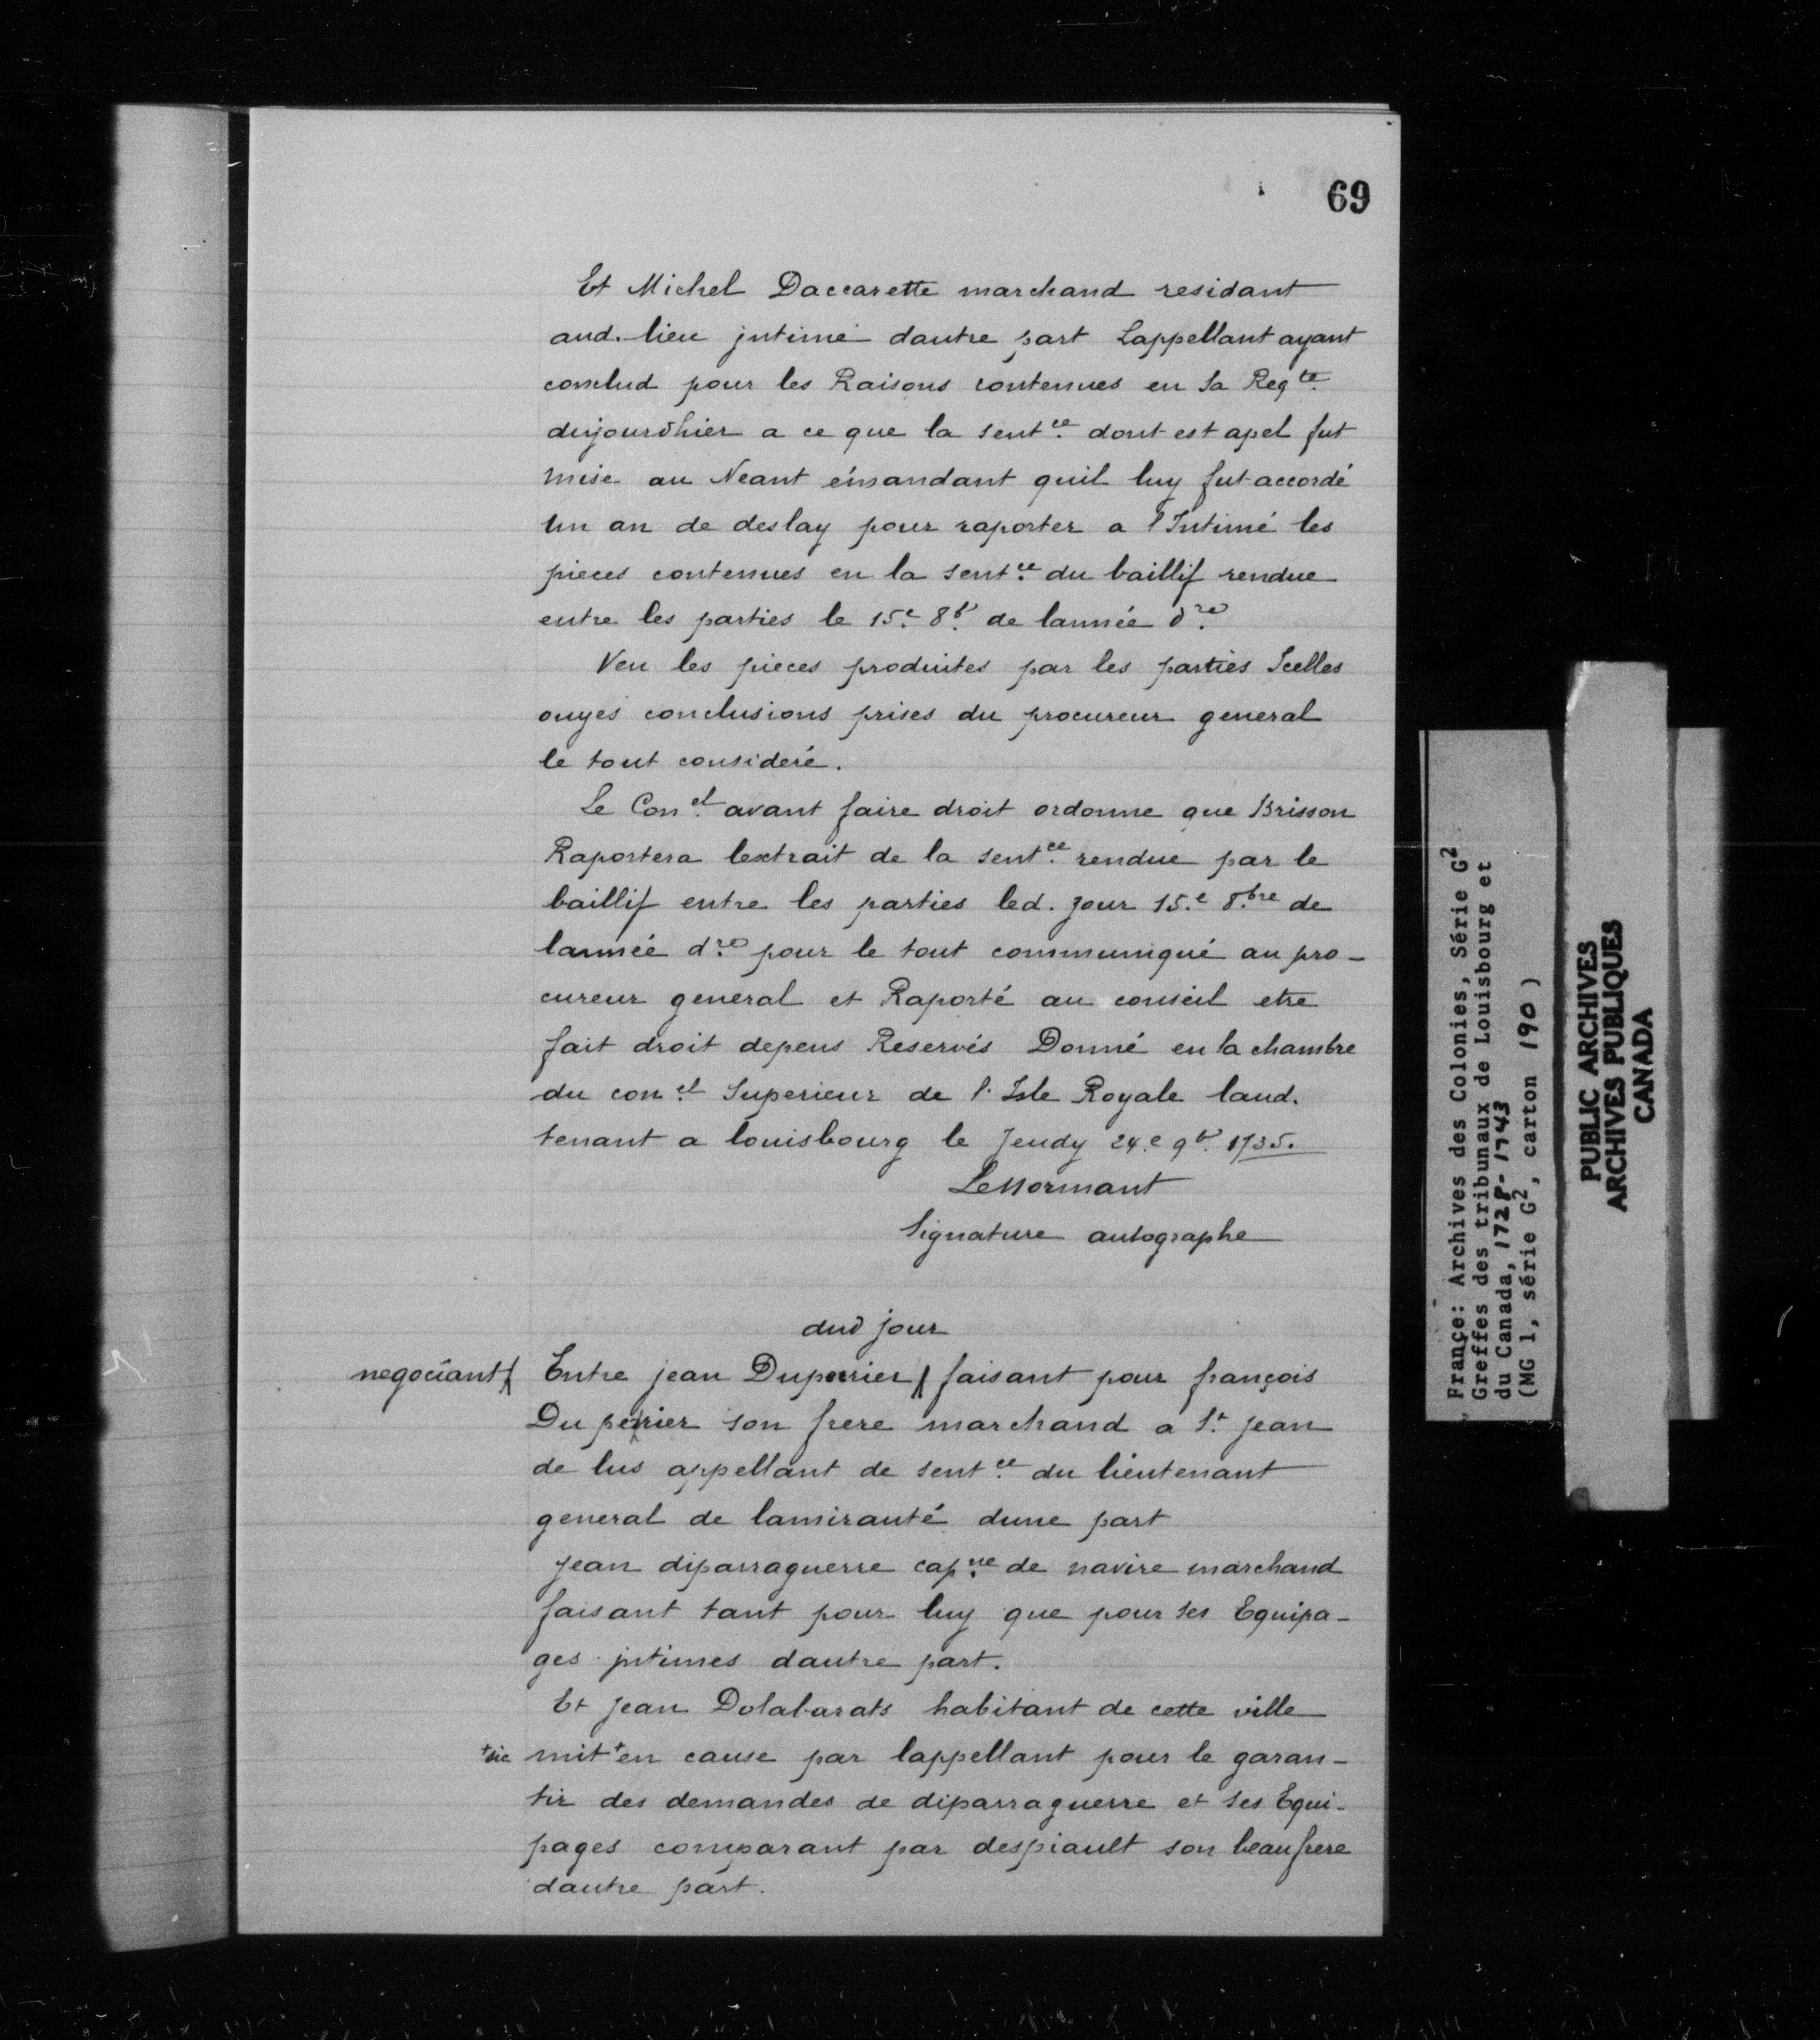 69
Et Michel Daccarette marchand residant
aud. lieu jntimé dautre part Lappellant ayant
conclud pour les Raisons contenues en Sa Reqte.
dujourdhier a ce que la sentce. dont est apel fut
mise au Neant émandant quil luy fut accordé
un an de deslay pour raporter a l'Intimé les
pieces contenues en la sentce. du baillif rendue
entre les parties le 15.e 8b. de lannée dre.
Veu les pieces produites par les parties Icelles
ouyes conclusions prises du procureur general
le tout consideré.
Le Conel. avant faire droit ordonne que Brisson
Raportera lextrait de la sentce. rendue par le
baillif entre les parties led. jour 15.e 8.bre de
lannée dre. pour le tout communiqué au pro-
cureur general et Raporté au conseil etre
fait droit depens Reservés Donné en la chambre
du conel. Superieur de l'Isle Royale laud.
tenant a louisbourg le Jeudy 24.e 9b. 1735.
LeNormant
Signature autographe
dud jour
negociant Entre jean Duperrier faisant pour françois
Du perier son frere marchand a St. jean
de lus appellant de sentce. du lieutenant
general de lamirauté dune part
jean diparraguerre capne. de navire marchand
faisant tant pour luy que pour ses Equipa-
ges jntimes dautre part.
Et jean Dolabarats habitant de cette ville
+sic mit+ en cause par lappellant pour le garan-
tir des demandes de diparraguerre et ses Equi-
pages comparant par despiault son beau frere
dautre part.
France: Archives des Colonies, Série G2
Greffes des tribunaux de Louisbourg et
du Canada, 1728-1743
(MG 1, série G2, carton 190)
PUBLIC ARCHIVES
ARCHIVES PUBLIQUES
CANADA